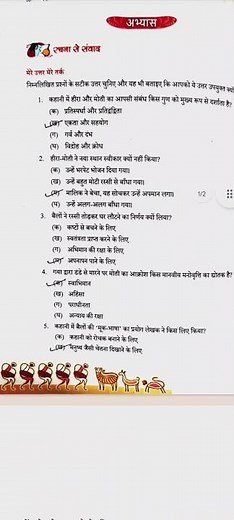 अभ्यास
रचना से संवाद
मेरे उत्तर मेरे तर्क
निम्नलिखित प्रश्नों के सटीक उत्तर चुनिए और यह भी बताइए कि आपको ये उत्तर उपयुक्त क्यों
1. कहानी में हीरा और मोती का आपसी संबंध किस गुण को मुख्य रूप से दर्शाता है?
(क) प्रतिस्पर्धा और प्रतिद्वंद्विता
(ख) एकता और सहयोग
(ग) गर्व और दंभ
(घ) विद्रोह और क्रोध
2. हीरा-मोती ने नया स्थान स्वीकार क्यों नहीं किया?
(क) उन्हें भरपेट भोजन दिया गया।
(ख) उन्हें बहुत मोटी रस्सी से बाँधा गया।
(ग) मालिक ने बेचा, यह सोचकर उन्हें अपमान लगा। 1/2
(घ) उन्हें अलग-अलग बाँधा गया।
3. बैलों ने रस्सी तोड़कर घर लौटने का निर्णय क्यों लिया?
(क) कष्टों से बचने के लिए
(ख) स्वतंत्रता प्राप्त करने के लिए
(ग) अभिमान की रक्षा के लिए
(घ) अपनापन पाने के लिए
4. गया द्वारा डंडे से मारने पर मोती का आक्रोश किस मानवीय मनोवृत्ति का द्योतक है?
(क) स्वाभिमान
(ख) अहिंसा
(ग) पराधीनता
(घ) अन्याय की रक्षा
5. कहानी में बैलों की 'मूक-भाषा' का प्रयोग लेखक ने किस लिए किया?
(क) कहानी को रोचक बनाने के लिए
(ख) मनुष्य जैसी चेतना दिखाने के लिए